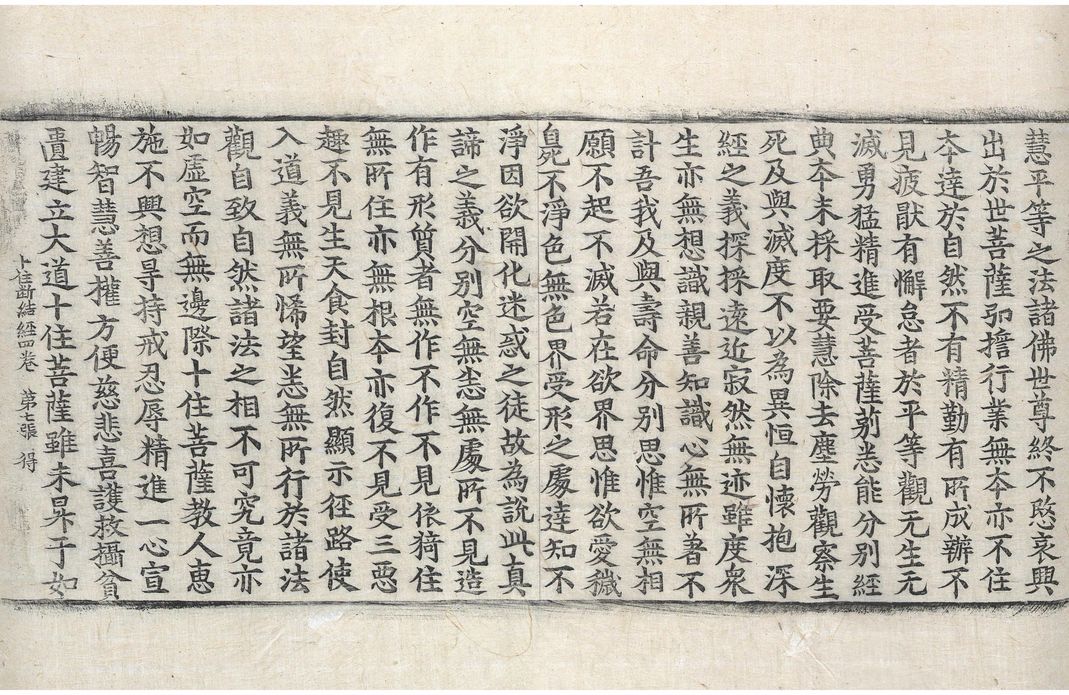 慧平等之法諸佛世尊終不愍哀興
出於世菩薩弘擔行業無夲亦不住
夲達於自然不有精勤有所成辦不
見疲猒有懈怠者於平等觀无生无
滅勇猛精進受菩薩莂悉能分別經
典夲末採取要慧除去塵勞觀察生
死及與滅度不以為異恒自懷抱深
經之義探採遠近寂然無迹雖度衆
生亦無想識親善知識心無所著不
計吾我及與壽命分別思惟空無相
願不起不滅若在欲界思惟欲愛穢
臭不淨色無色界受形之處達知不
淨因欲開化迷惑之徒故為說此真
諦之義分別空無悉無處所不見造
作有形質者無作不作不見依猗住
無所住亦無根夲亦復不見受三惡
趣不見生天食封自然顯示徑路使
入道義無所悕望悉無所行於諸法
觀自致自然諸法之相不可究竟亦
如虛空而無邊際十住菩薩教人惠
施不興想㝵持戒忍辱精進一心宣
暢智慧善權方便慈悲喜護救攝貧
匱建立大道十住菩薩雖未昇于如
十住斷結經四卷 第七張 得